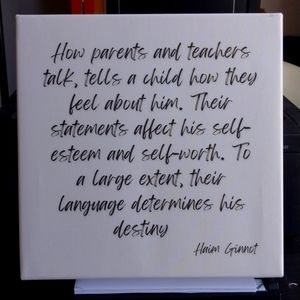 How parents and teachers
talk, tells a child how they
feel about him. Their
statements affect his self-
esteem and self-worth. To
a large extent, their
language determines his
destiny
Haim Ginnot